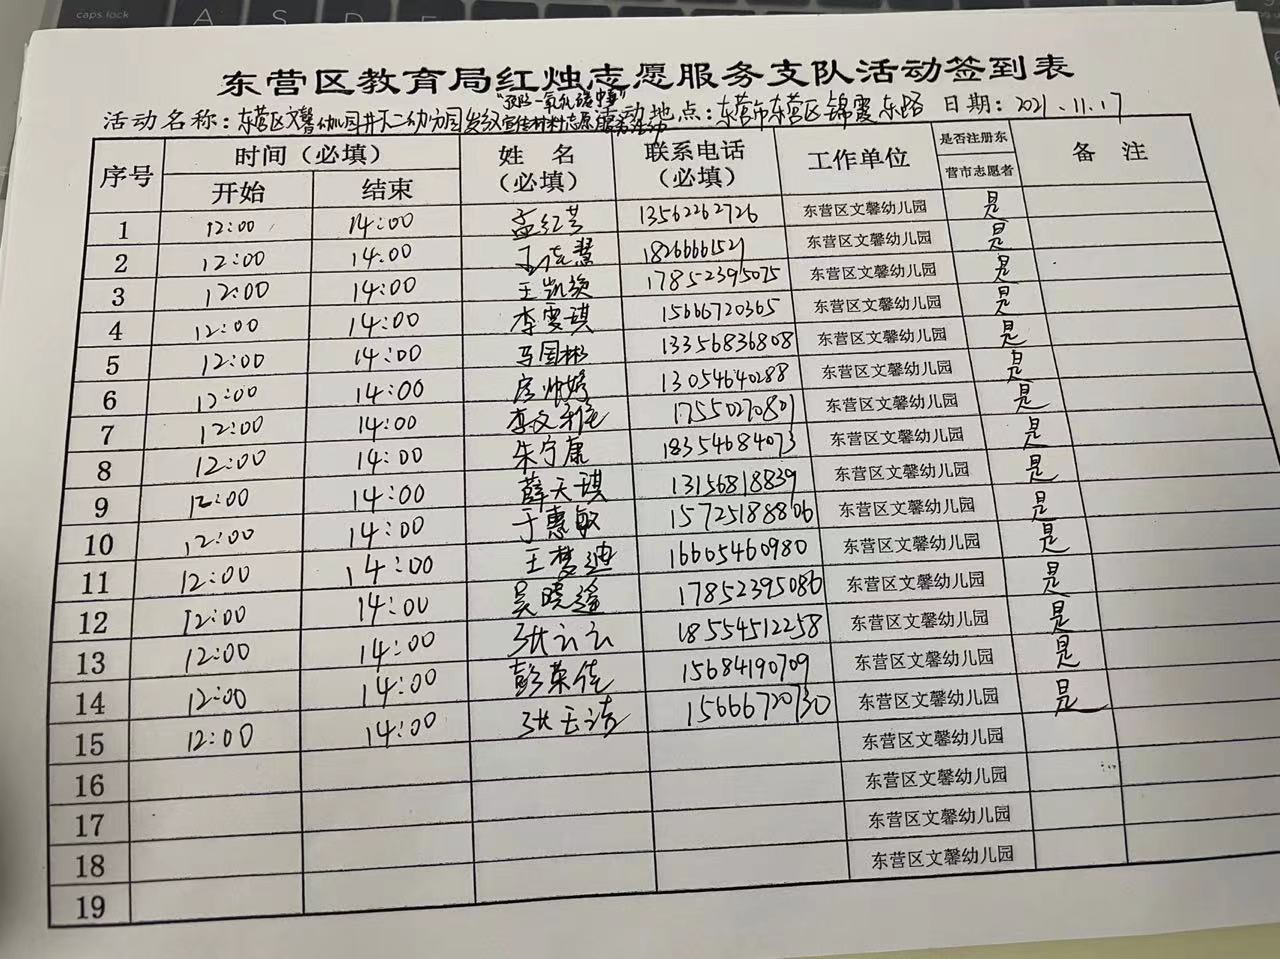 caps lock A S D
东营区教育局红烛志愿服务支队活动签到表
"预防一氧化碳中毒"
活动名称：东营区文馨幼儿园 发放宣传材料志愿服务活动 活动地点：东营市东营区锦霞东路 日期：2021.11.17
序号 时间（必填） 开始 结束 姓名（必填） 联系电话（必填） 工作单位 是否注册东营市志愿者 备注
1 12:00 14:00 孟红芸 13562262726 东营区文馨幼儿园 是
2 12:00 14:00 18266661521 东营区文馨幼儿园 是
3 12:00 14:00 王凯焕 17852395075 东营区文馨幼儿园 是
4 12:00 14:00 李雯琪 15666720365 东营区文馨幼儿园 是
5 12:00 14:00 马国彬 13356836808 东营区文馨幼儿园 是
6 12:00 14:00 13054640288 东营区文馨幼儿园 是
7 12:00 14:00 17550270801 东营区文馨幼儿园 是
8 12:00 14:00 朱宁康 18354684073 东营区文馨幼儿园 是
9 12:00 14:00 薛天琪 13156818839 东营区文馨幼儿园 是
10 12:00 14:00 于惠敏 15725188806 东营区文馨幼儿园 是
11 12:00 14:00 王梦迪 16605460980 东营区文馨幼儿园 是
12 12:00 14:00 吴晓遥 17852395086 东营区文馨幼儿园 是
13 12:00 14:00 张云云 18554512258 东营区文馨幼儿园 是
14 12:00 14:00 彭荣佳 15684190709 东营区文馨幼儿园 是
15 12:00 14:00 张玉洁 15666720730 东营区文馨幼儿园 是
16 东营区文馨幼儿园
17 东营区文馨幼儿园
18 东营区文馨幼儿园
19 东营区文馨幼儿园